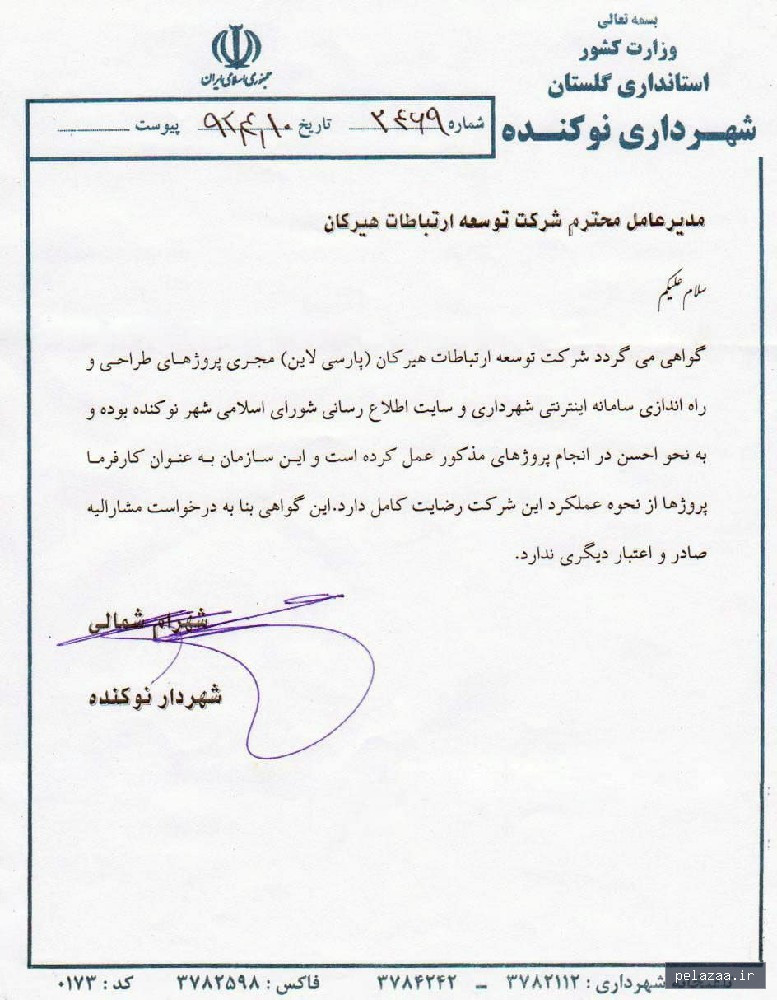 بسمه تعالی
وزارت کشور
استانداری گلستان
شهرداری نوکنده
جمهوری اسلامی ایران
شماره ۳۴۶۹ تاریخ ۹۲,۴,۱۰ پیوست
مدیرعامل محترم شرکت توسعه ارتباطات هیرکان
سلام علیکم
گواهی می گردد شرکت توسعه ارتباطات هیرکان (پارسی لاین) مجری پروژهای طراحی و
راه اندازی سامانه اینترنتی شهرداری و سایت اطلاع رسانی شورای اسلامی شهر نوکنده بوده و
به نحو احسن در انجام پروژهای مذکور عمل کرده است و این سازمان به عنوان کارفرما
پروژها از نحوه عملکرد این شرکت رضایت کامل دارد.این گواهی بنا به درخواست مشارالیه
صادر و اعتبار دیگری ندارد.
شهرام شمالی
شهردار نوکنده
شهرداری : ۳۷۸۲۱۱۲ ـ ۳۷۸۴۲۴۲ فاکس : ۳۷۸۲۵۹۸ کد : ۰۱۷۳
pelazaa.ir